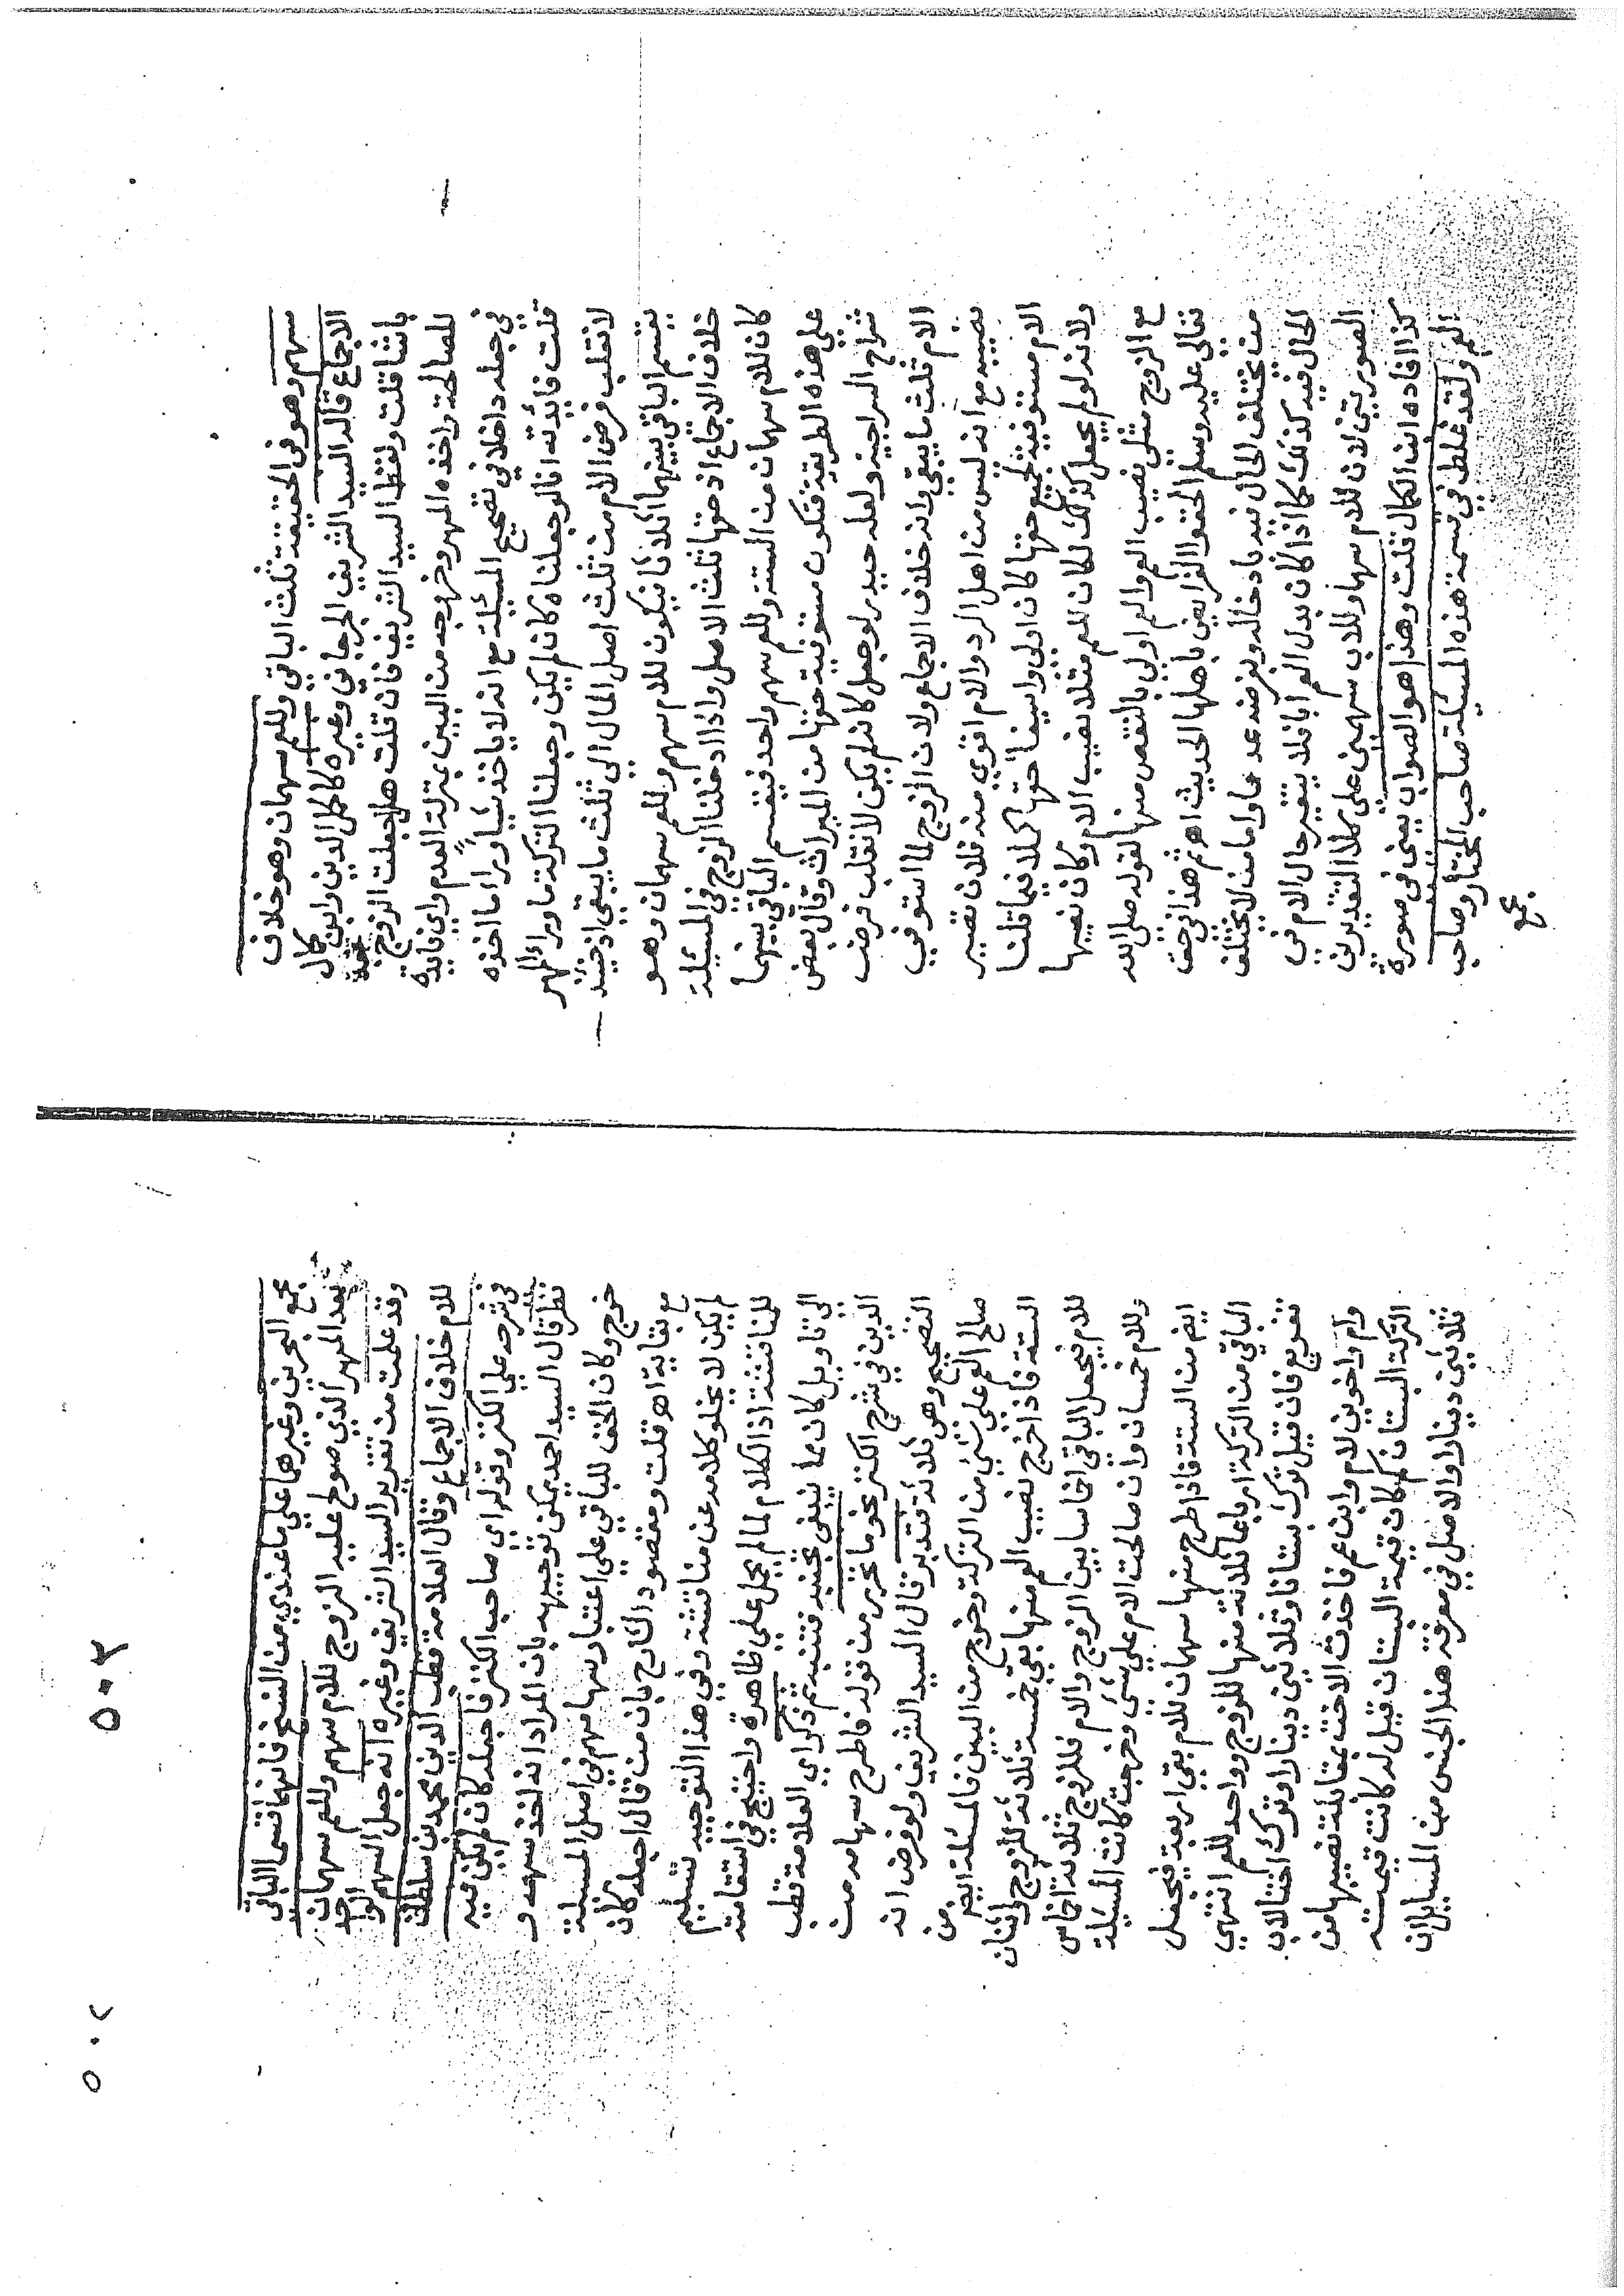 سهم وهو في الحقيقة ثلث الباقي وللعم سهمان وهو خلاف
الاجماع قاله السيد الشريف الجرجاني وغيره كاكمل الدين وابن كمال
باشا قلت ولفظ السيد الشريف فان قلت هل جعلت الزوج بعد
المصالحة واخذه المهر وخروجه من البين بمنزلة العدم واي فايدة
في جعله داخلا في تصحيح المسئلة مع انه لا ياخذ شيأ وراء ما اخذه
قلت فايدته انا لو جعلناه كان لم يكن وجعلنا التركة ما وراء المهر
لانقلب فرض الام من ثلث اصل المال الى ثلث ما يبقى اذ حينئذ
يقسم الباقي بينهما اثلاثا فيكون للام سهم وللعم سهمان وهو
خلاف الاجماع اذ حقها ثلث الاصل واذا ادخلنا الزوج في المسئلة
كان للام سهمان من الستة وللعم سهم واحد فيقسم الباقي بينهما
على هذه الطريقة فتكون مستوفية حقها من الميراث وقال بعض
شراح السراجية ولعله حيدر لو جعل كانه لم يكن لانقلب فرض
الام ثلث ما يبقى وانه خلاف الاجماع ولان الزوج لما استوفي
نصيبه مع انه ليس من اهل الرد والام اقوى منه فلان تصير
الام مستوفية لجميع حقها كان اولى وايضا حقها كملا فيما قلنا
ولانه لو لم يجعل كذلك لكان للعم مثلا نصيب الام وكان نصيبها
مع الزوج مثلى نصيب العم والعم اولى بالنقص منها لقوله صلى الله
تعالى عليه وسلم الحقوا الفرايض باهلها الحديث اهـ ثم هذا في حق
من يختلف الحال فيه بادخاله وبفرضه عدما واما من لا يختلف
الحال فيه كذلك كما اذا كان بدل العم ابا فلا يتغير حال الام في
الصورتين لان للام سهما وللاب سهمين على كلا التقديرين
كذا افاده ابن الكمال قلت وهذا هو الصواب يعني في صورة
العم ولقد غلط في قسمة هذه المسئلة صاحب المختار وصاحب
مجمع
مجمع البحرين وغيرها على ما عندي من النسخ فانهما قسما الباقي
بعد المهر الذي صولح عليه الزوج للام سهم وللعم سهمان
وقد علمت من تقرير السيد الشريف وغيره انه جعل السهم الواحد
للام خلاف الاجماع وقال العلامة قطب الدين محمد بن سلطان
في شرحه على الكنز وقوله اي صاحب الكنز فاجعله كان لم يكن فيه
نظر قال السيد احمد يمكن توجيهه بان المراد انه اخذ سهمه و
خرج وكان الحق للباقي على اعتبار سهامهم في اصل المسئلة
مع بقايه اهـ قلت ومقصود الشارح بان من قال اجعله كان
لم يكن لا يخلو كلامه عن مناقشة وفي هذا التوجيه تسليم
للمناقشة اذ الكلام لما لم يحمل على ظاهره واحتيج في استقامته
الى تاويل كان مما ينبغي تجنبه فتنبه ثم ذكر اي العلامة قطب
الدين في شرح الكنز نحو ما تحرير من قوله فاطرح سهامه من
التصحيح وهي ثلاثة فتدبر قال السيد الشريف ولو فرض انه
صالح العم على شيء من التركة وخرج من البين فالمسئلة ايضا من
الستة فاذا اخرج نصيب العم منها بقي خمسة ثلاثة للزوج واثنان
للام فيجعل الباقي اخماسا بين الزوج والام فللزوج ثلاثة اخماس
وللام خمسان وان صالحت الام على شيء وخرجت كانت المسئلة
ايضا من الستة فاذا طرح منها سهمان للام بقي اربعة فيجعل
الباقي من التركة ارباعا ثلاثة منها للزوج وواحد للعم انتهى
تفريع فان قيل ترك بستانا وثلاثين دينارا وترك اختا لاب
وام واخوين لام وابن عم فاخذت الاخت بمقابلة نصيبها من
التركة البستان كم كان قيمة البستان قيل له كانت قيمته
ثلاثين دينارا والاصل في معرفة هذا الجنس من المسايل ان
٥٠٣
٥٠٢